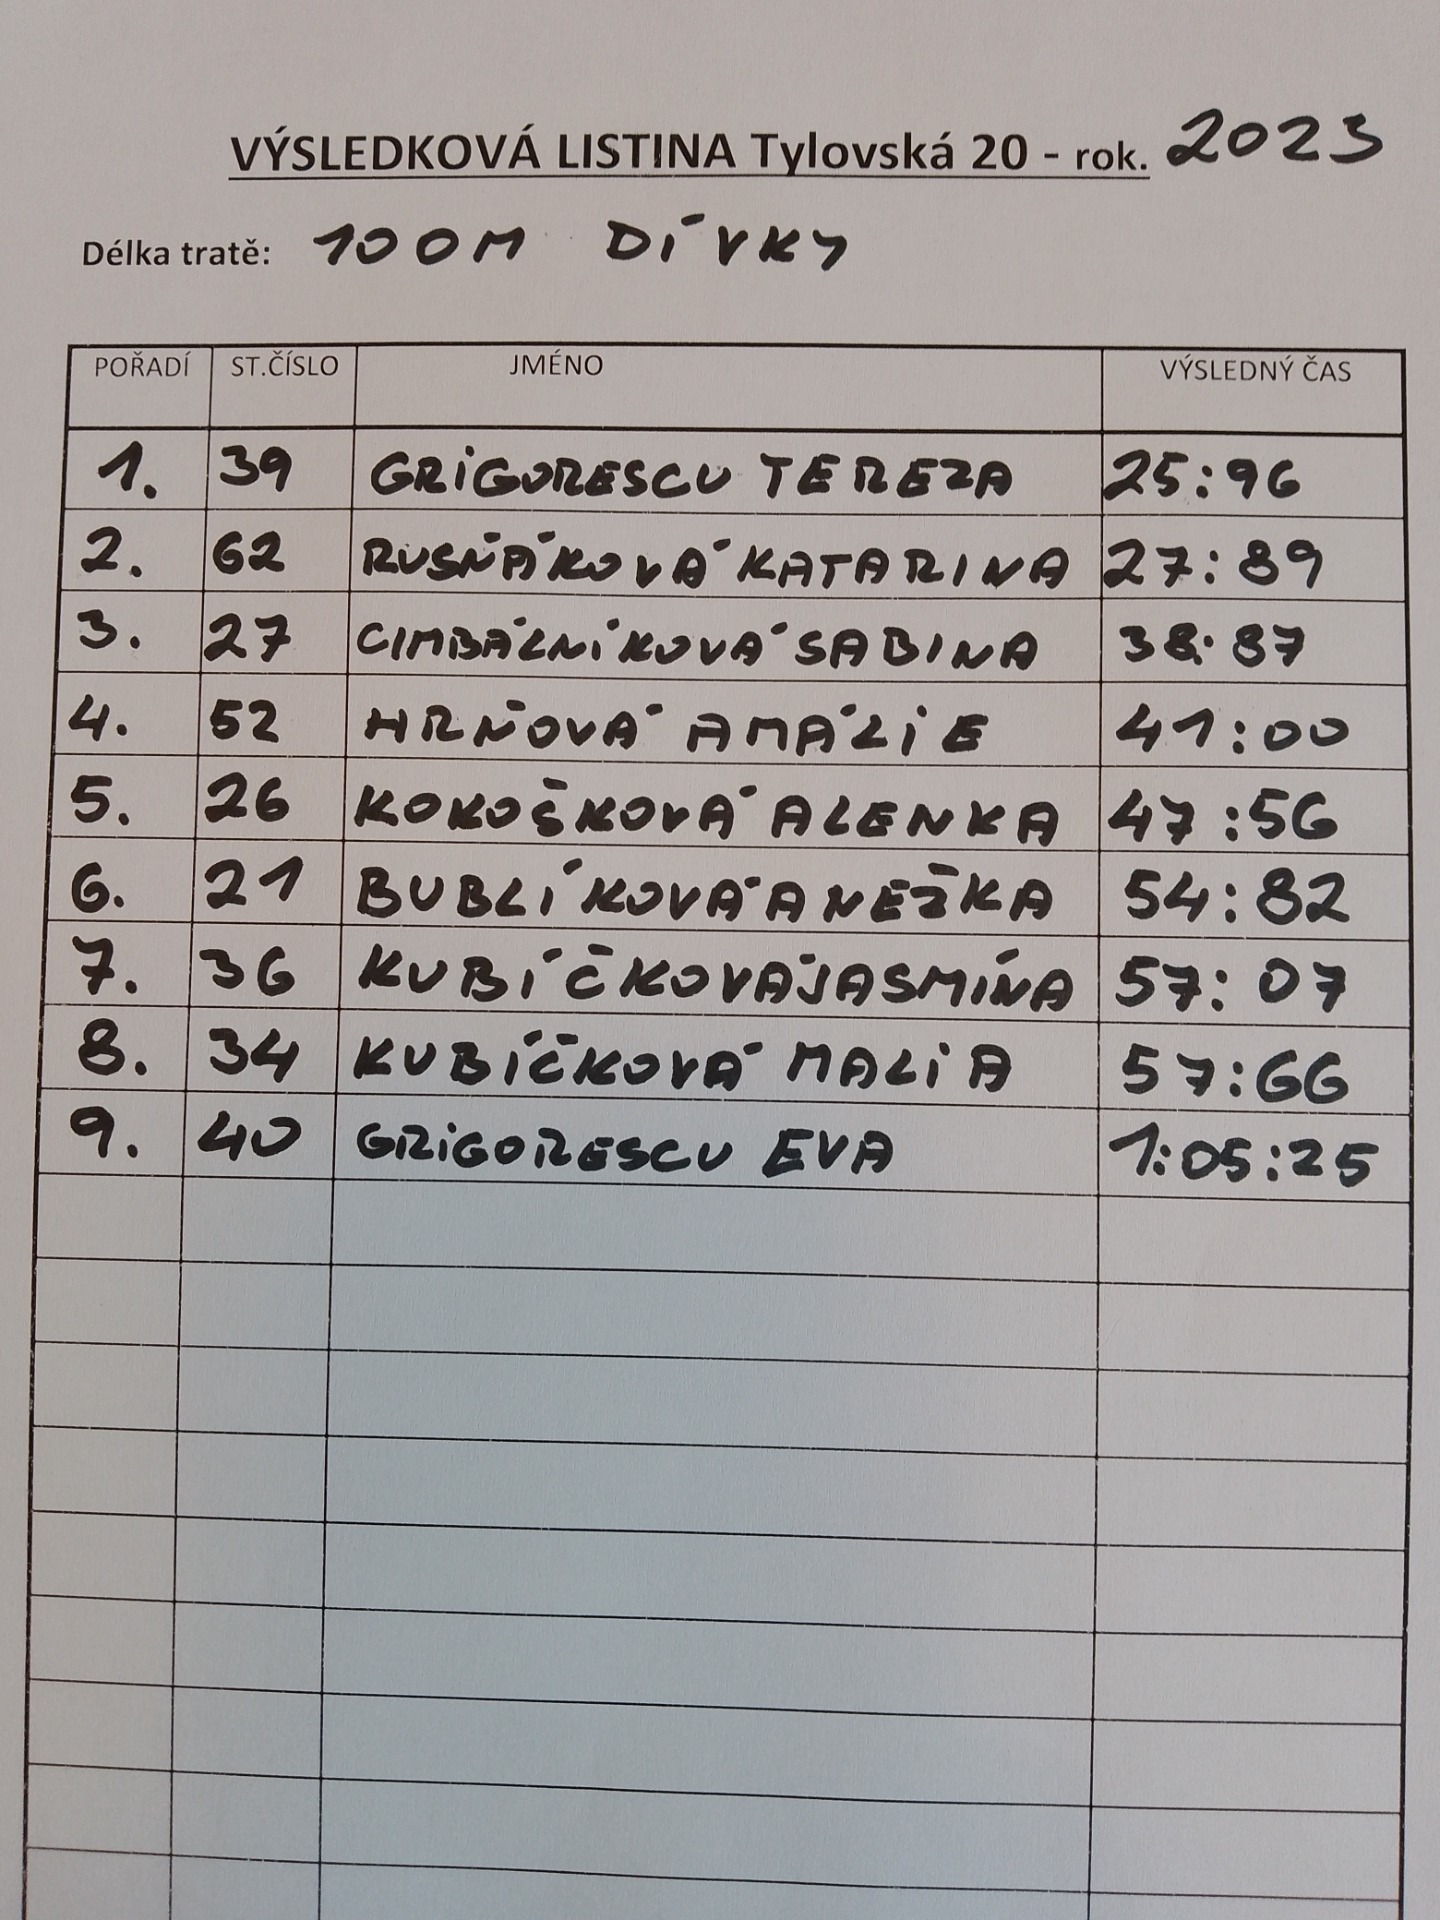 VÝSLEDKOVÁ LISTINA Tylovská 20 - rok. 2023
Délka tratě: 100M DÍVKY
POŘADÍ ST.ČÍSLO JMÉNO VÝSLEDNÝ ČAS
1. 39 GRIGORESCU TEREZA 25:96
2. 62 RUSŇÁKOVÁ KATARINA 27:89
3. 27 CIMBÁLNÍKOVÁ SABINA 38:87
4. 52 HRŇOVÁ AMÁLIE 41:00
5. 26 KOKOŠKOVÁ ALENKA 47:56
6. 21 BUBLÍKOVÁ ANEŽKA 54:82
7. 36 KUBÍČKOVÁ JASMÍNA 57:07
8. 34 KUBÍČKOVÁ MALIA 57:66
9. 40 GRIGORESCU EVA 1:05:25